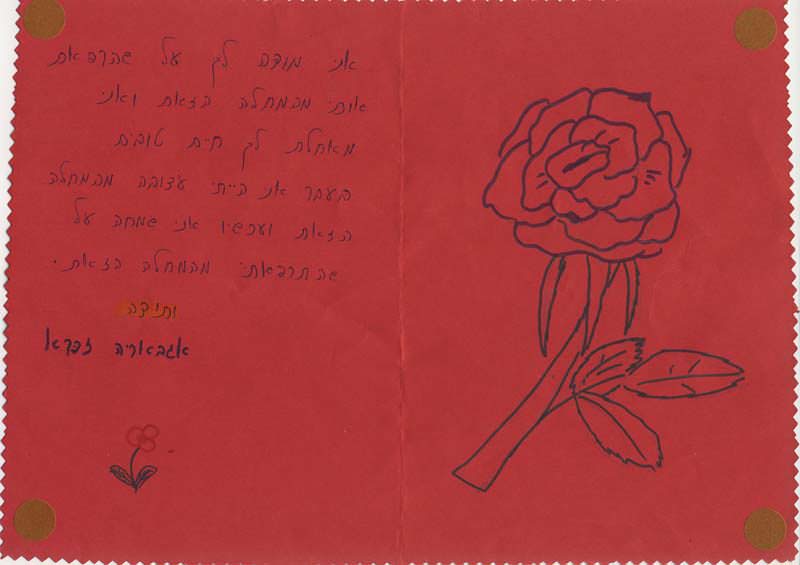 אני מודה לך על שהרפאת
אותי מהמחלה הזאת ואני
מאחלת לך חיים טובים
בעבר אני הייתי עצובה מהמחלה
הזאת ועכשיו אני שמחה על
שהתרפאתי מהמחלה הזאת.
ותודה
אגבאריה זהרא